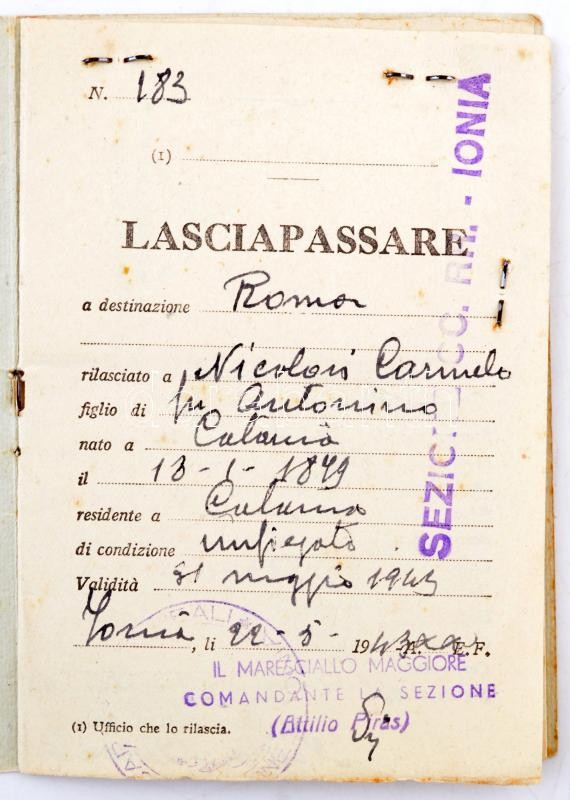 N. 183
(1)
LASCIAPASSARE
a destinazione Roma
rilasciato a Nicolosi Carmelo
figlio di fu Antonino
nato a Catania
il 13-1-1879
residente a Catania
di condizione impiegato
Validità 31 maggio 1943
Ionia, li 22-5-1943 A. E.F.
IL MARESCIALLO MAGGIORE
COMANDANTE LA SEZIONE
(Attilio Piras)
(1) Ufficio che lo rilascia.
SEZIO CC. RR. - IONIA